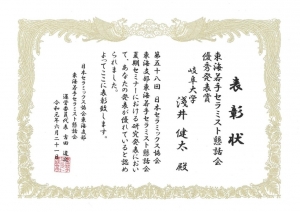 表彰状
東海若手セラミスト懇話会
優秀発表賞
岐阜大学
浅井 健太 殿
第五十八 日本セラミックス協会
東海支部東海若手セラミスト懇話会
夏期セミナーにおける研究発表におい
て、あなたの発表が優れていると認め
られました。
よってここに表彰致します。
令和元年六月二十一
日本セラミックス協会東海支部
東海若手セラミスト懇話会
運営委員代表 吉田 道之